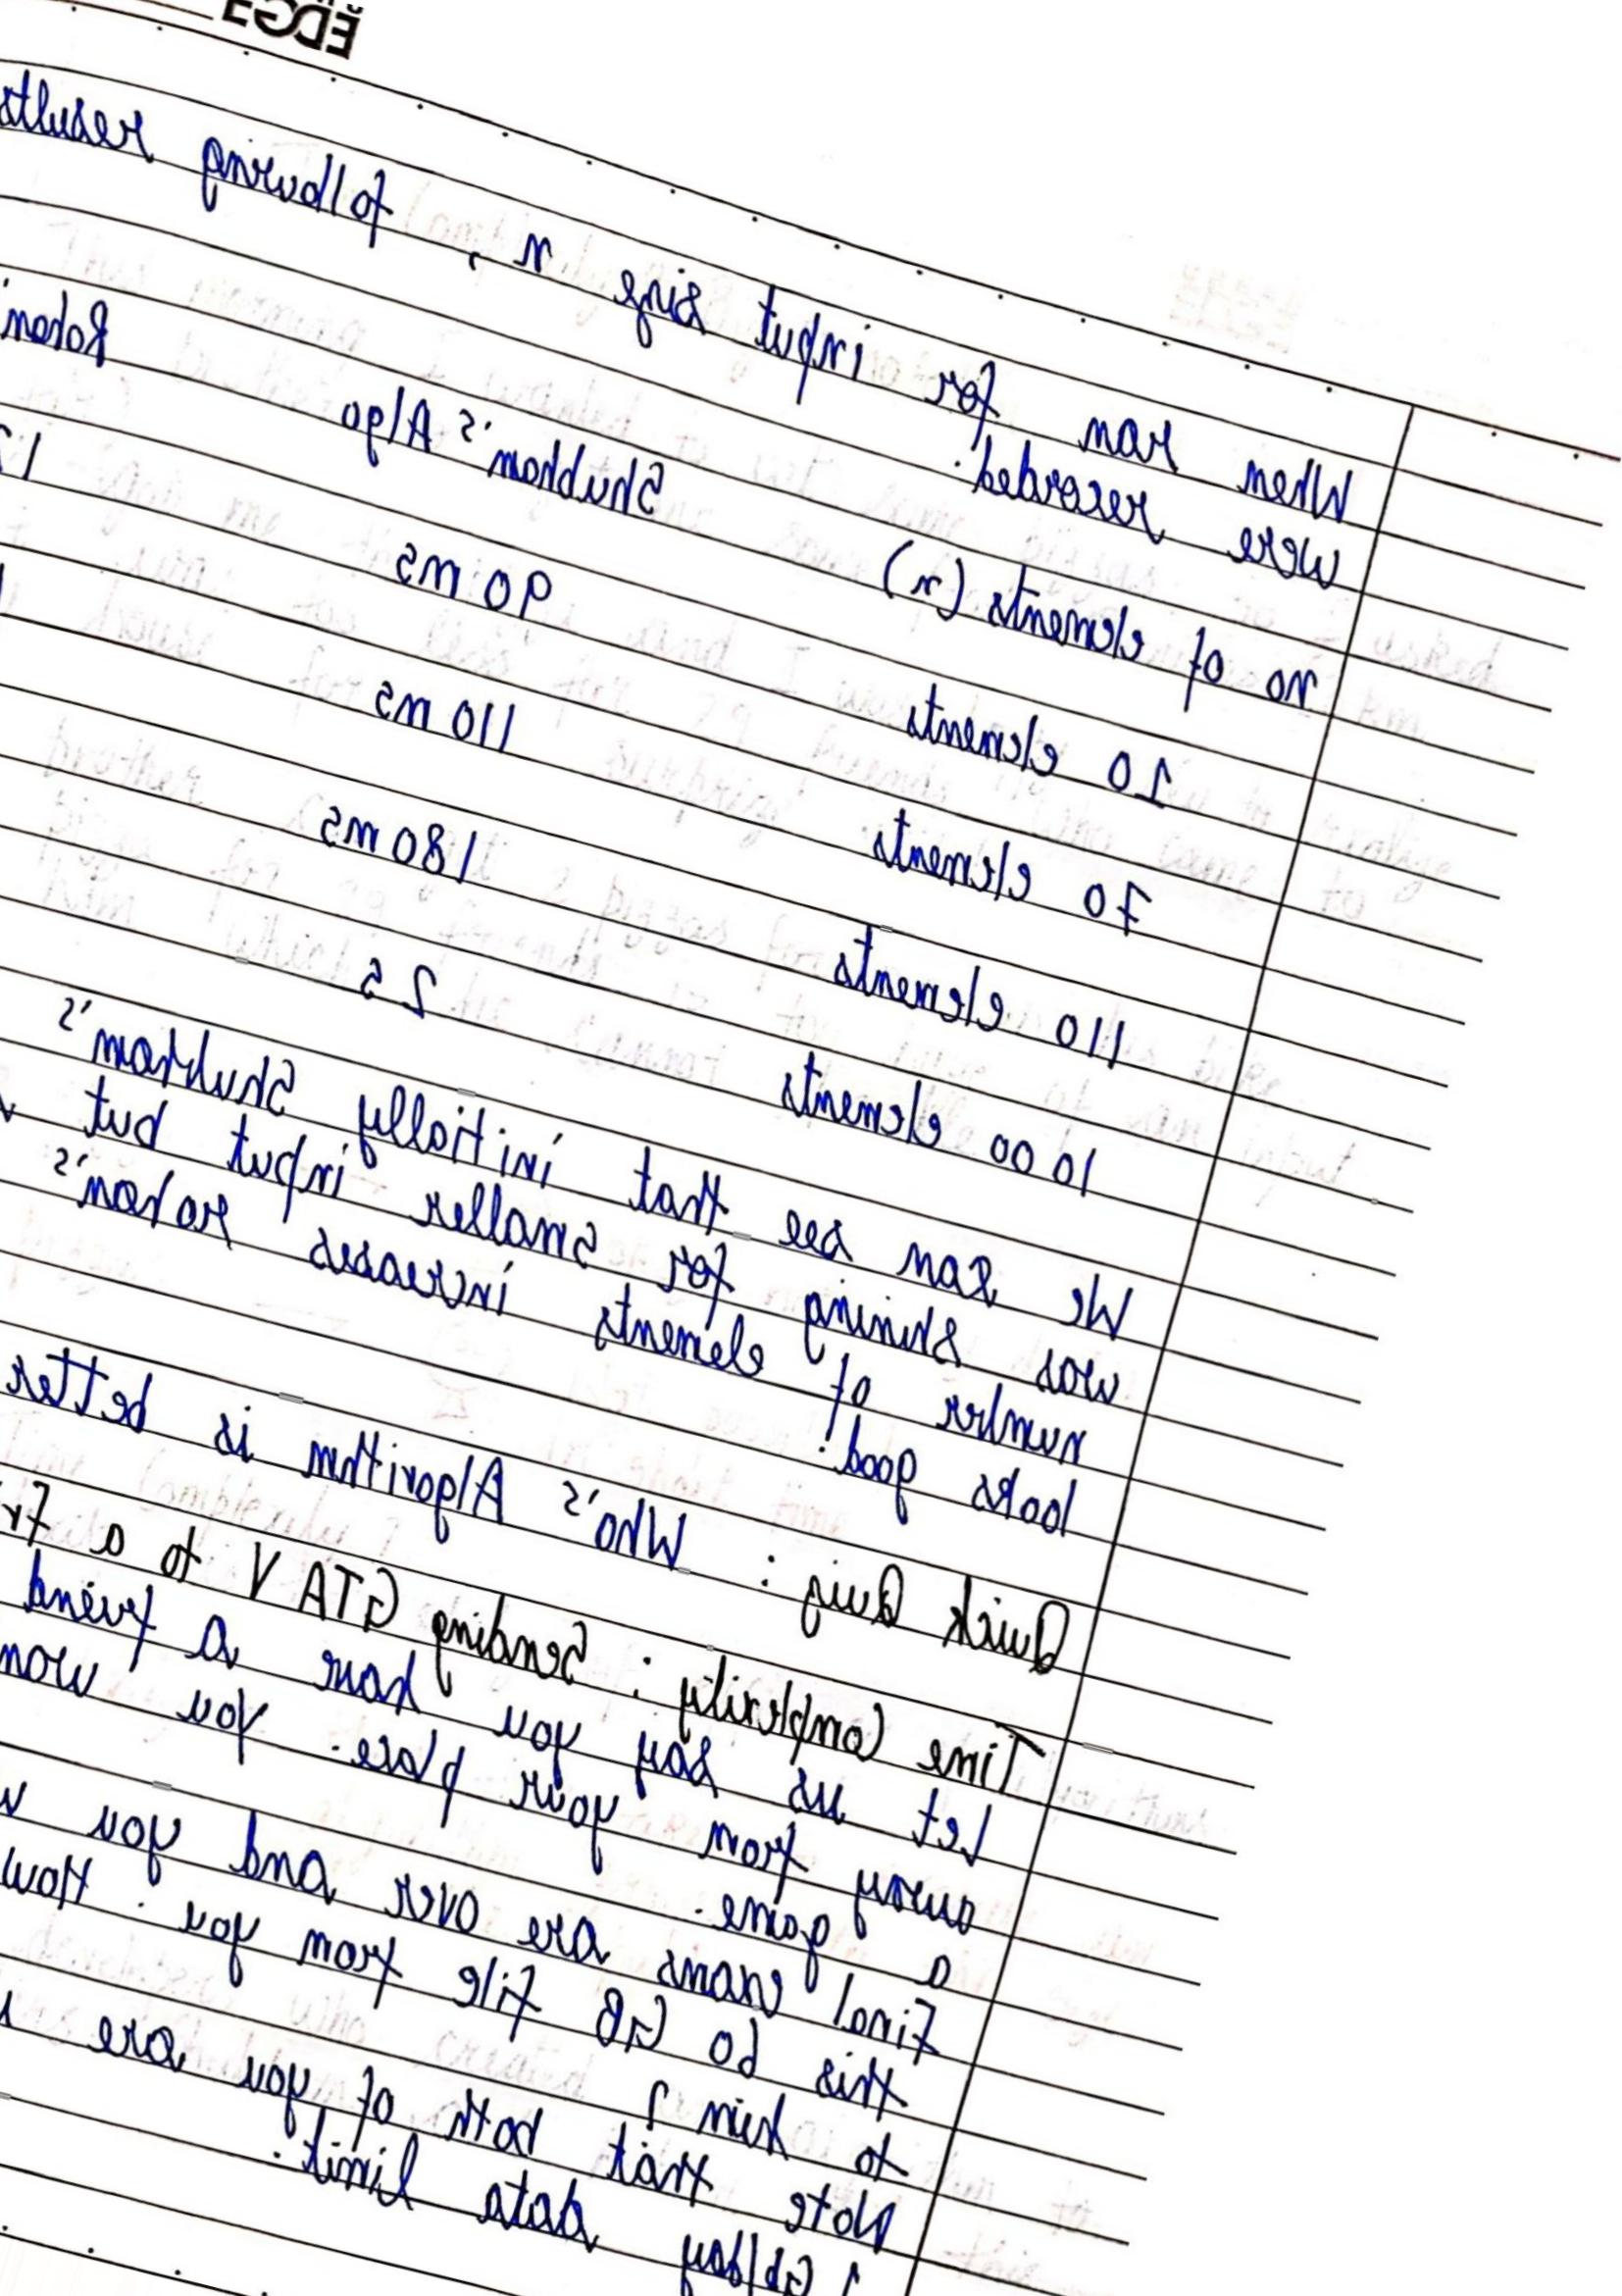 EDGE
When ran for input size n, following results
were recorded:
no of elements (n) Shubham's Algo Rohan
10 elements 90 ms
70 elements 110 ms
110 elements 180 ms
1000 elements 2s
We can see that initially Shubham's
was shining for smaller input but
number of elements increases rohan's
looks good!
Quick Quiz : Who's Algorithm is better
Time Complexity : Sending GTA V to a
Let us say you have a friend
away from your place. You
a game.
Final exams are over and you
this 60 GB file from you. How
to him?
Note that both of you are
1 Gb/day data limit.